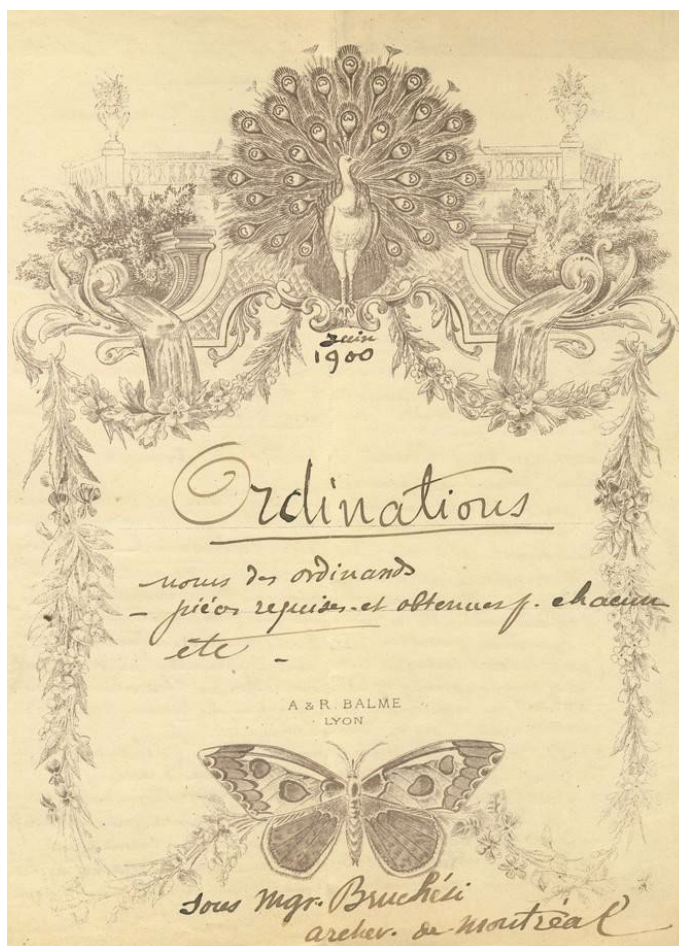 Juin
1900
Ordinations
- noms des ordinands
- pièces requises et obtenues p. chacun
etc -
A & R. BALME
LYON
sous Mgr. Bruchési
archev. de Montréal